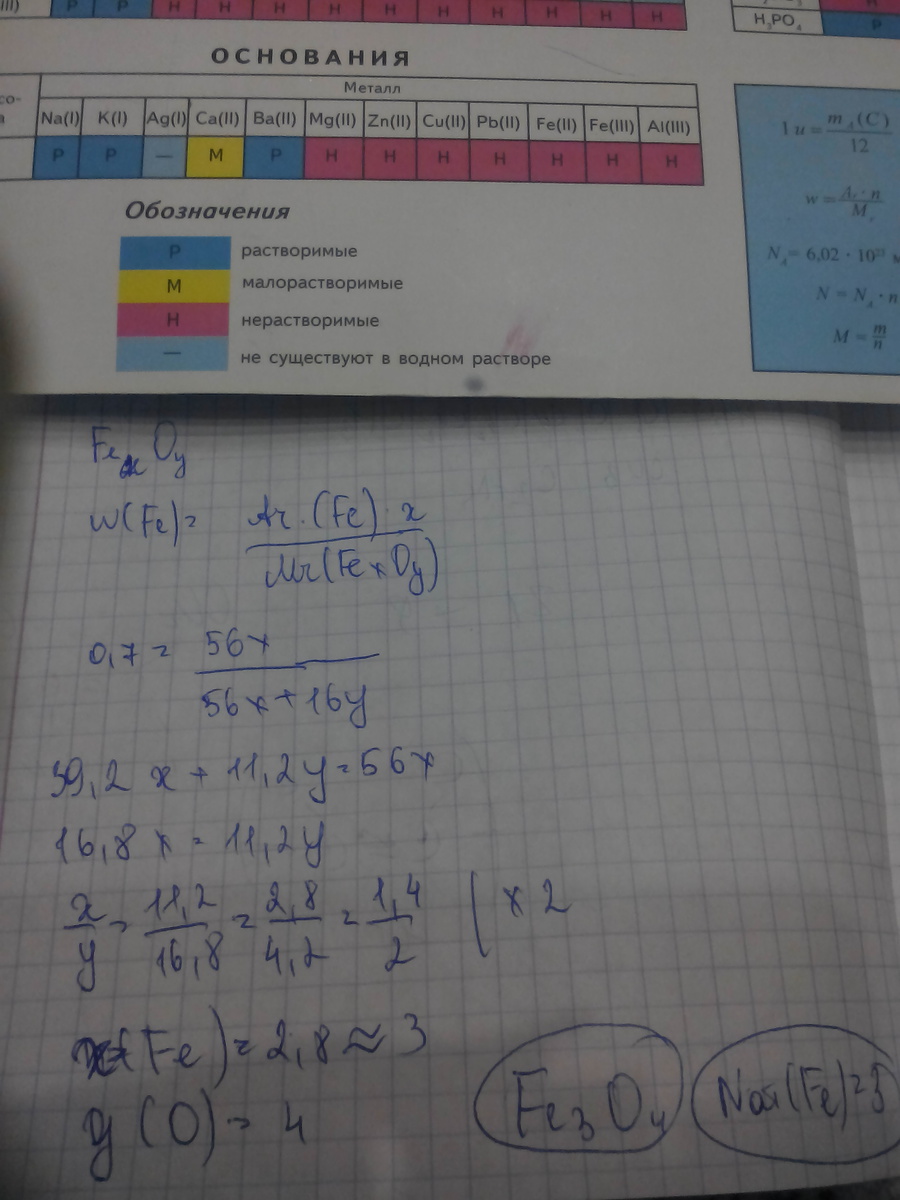 Р Р Н Н Н Н Н Н Н Н Н
H₃PO₄ Р
ОСНОВАНИЯ
Металл
Na(I) K(I) Ag(I) Ca(II) Ba(II) Mg(II) Zn(II) Cu(II) Pb(II) Fe(II) Fe(III) Al(III)
Р Р — М Р Н Н Н Н Н Н Н
Обозначения
Р растворимые
М малорастворимые
Н нерастворимые
— не существуют в водном растворе
1 u = m_A(C) / 12
w = A_r · n / M_r
N_A = 6,02 · 10²³
N = N_A · n
M = m / n
FexOy
w(Fe) = Ar·(Fe)·x / Mr(FexOy)
0,7 = 56x / 56x + 16y
39,2 x + 11,2y = 56x
16,8 x = 11,2y
x/y = 11,2/16,8 = 2,8/4,2 = 1,4/2 | × 2
(Fe) = 2,8 ≈ 3
y (O) = 4
Fe₃O₄
(Fe)=3